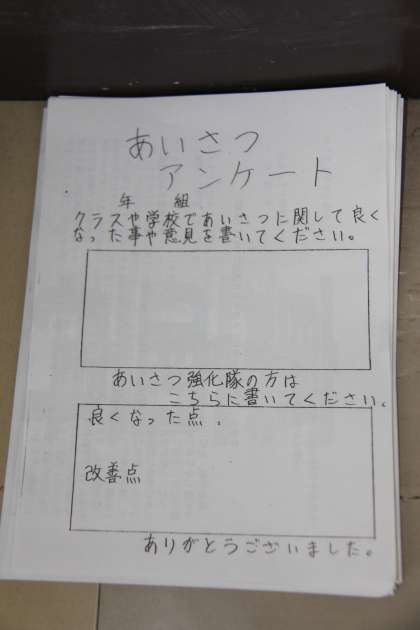 あいさつ
アンケート
年 組
クラスや学校であいさつに関して良く
なった事や意見を書いてください。
あいさつ強化隊の方は
こちらに書いてください。
良くなった点.
改善点
ありがとうございました。